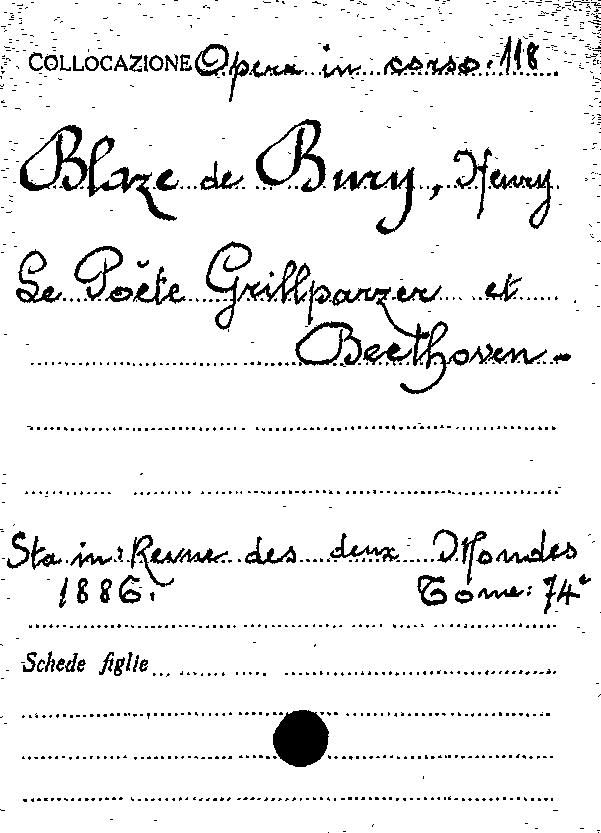 COLLOCAZIONE Opera in corso. 118
Blaze de Bury, Henry
Le Poëte Grillparzer et
Beethoven -
Sta in: Revue des deux Mondes
1886. Tome: 74e
Schede figlie